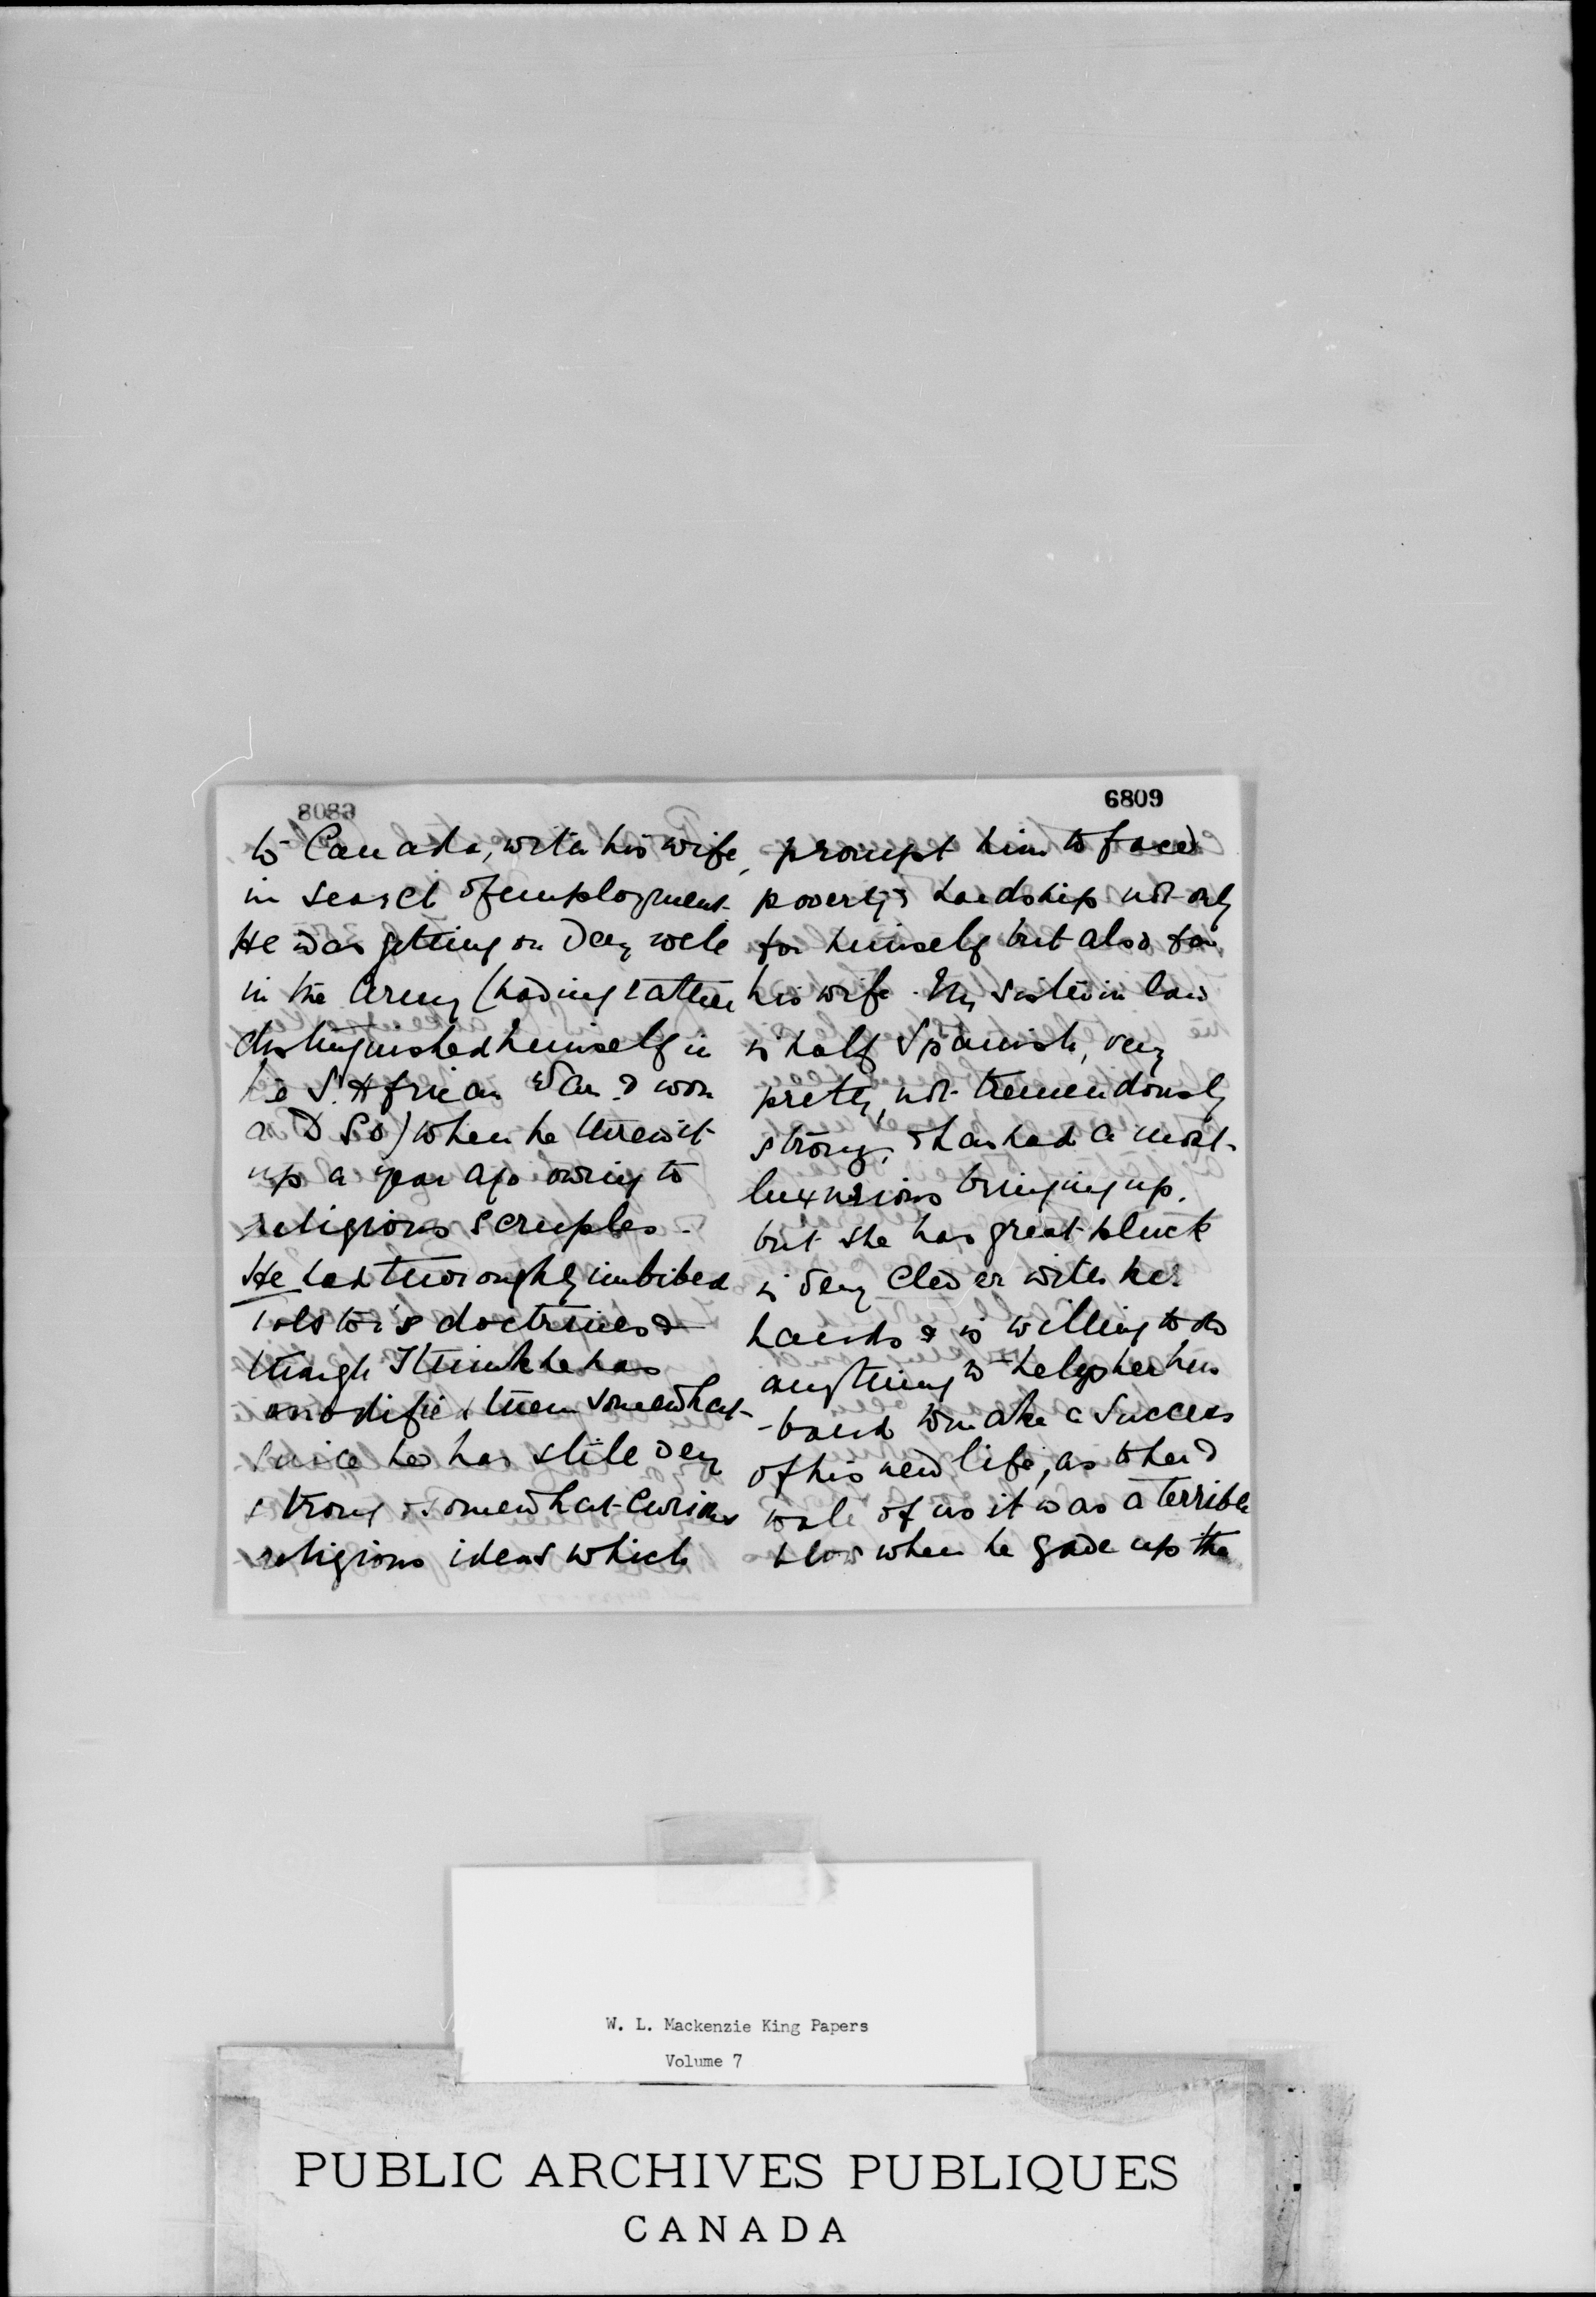 6809
to Canada, with his wife,
in search of employment.
He was getting on very well
in the Army (having rather
distinguished himself in
the S. African War & won
a D S O) when he threw it
up a year ago owing to
religious scruples.
He had thoroughly imbibed
Tolstoi's doctrines &
though I think he has
modified them somewhat
since he has still very
strong & somewhat curious
religious ideas which
prompt him to face
poverty & hardship not only
for himself but also for
his wife. My sister in law
is half Spanish, very
pretty, not tremendously
strong, & has had a most
luxurious bringing up.
but she has great pluck
is very clever with her
hands & is willing to do
anything to help her hus
-band to make a success
of his new life, as to her &
to all of us it was a terrible
blow when he gave up the
W. L. Mackenzie King Papers
Volume 7
PUBLIC ARCHIVES PUBLIQUES
CANADA